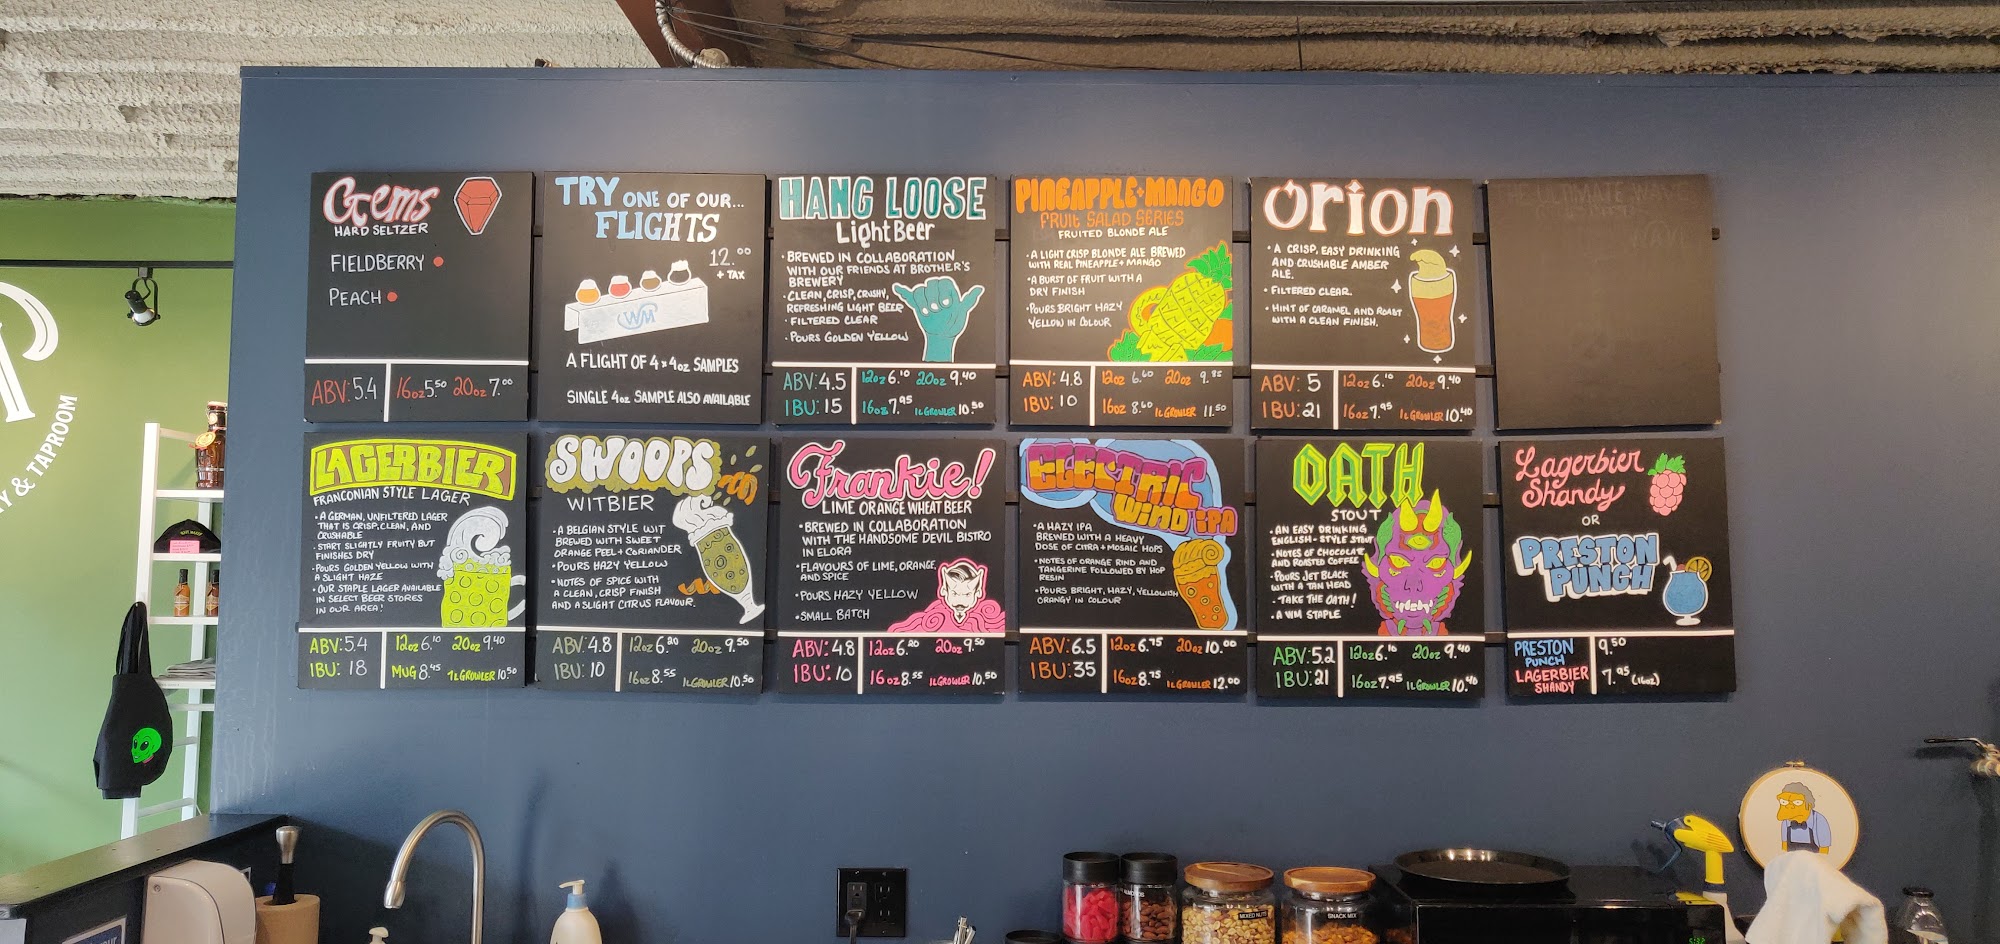 Gems
HARD SELTZER
FIELDBERRY
PEACH
ABV: 5.4
16oz 5.50 20oz 7.00
TRY ONE OF OUR...
FLIGHTS
12.00
+ TAX
WM
A FLIGHT OF 4 x 4oz SAMPLES
SINGLE 4oz SAMPLE ALSO AVAILABLE
HANG LOOSE
Light Beer
• BREWED IN COLLABORATION
WITH OUR FRIENDS AT BROTHER'S
BREWERY
• CLEAN, CRISP, CRUSHY,
REFRESHING LIGHT BEER
• FILTERED CLEAR
• POURS GOLDEN YELLOW
ABV: 4.5
IBU: 15
12oz 6.10 20oz 9.40
16oz 7.95 1L GROWLER 10.50
PINEAPPLE + MANGO
FRUIT SALAD SERIES
FRUITED BLONDE ALE
• A LIGHT CRISP BLONDE ALE BREWED
WITH REAL PINEAPPLE + MANGO
• A BURST OF FRUIT WITH A
DRY FINISH
• POURS BRIGHT HAZY
YELLOW IN COLOUR
ABV: 4.8
IBU: 10
12oz 6.60 20oz 9.85
16oz 8.60 1L GROWLER 11.50
Orion
• A CRISP, EASY DRINKING
AND CRUSHABLE AMBER
ALE.
• FILTERED CLEAR.
• HINT OF CARAMEL AND ROAST
WITH A CLEAN FINISH.
ABV: 5
IBU: 21
12oz 6.10 20oz 9.40
16oz 7.95 1L GROWLER 10.40
LAGERBIER
FRANCONIAN STYLE LAGER
• A GERMAN, UNFILTERED LAGER
THAT IS CRISP, CLEAN, AND
CRUSHABLE
• START SLIGHTLY FRUITY BUT
FINISHES DRY
• POURS GOLDEN YELLOW WITH
A SLIGHT HAZE
• OUR STAPLE LAGER AVAILABLE
IN SELECT BEER STORES
IN OUR AREA!
ABV: 5.4
IBU: 18
12oz 6.10 20oz 9.40
MUG 8.45 1L GROWLER 10.50
SWOOPS
WITBIER
• A BELGIAN STYLE WIT
BREWED WITH SWEET
ORANGE PEEL + CORIANDER
• POURS HAZY YELLOW
• NOTES OF SPICE WITH
A CLEAN, CRISP FINISH
AND A SLIGHT CITRUS FLAVOUR.
ABV: 4.8
IBU: 10
12oz 6.20 20oz 9.50
16oz 8.55 1L GROWLER 10.50
Frankie!
LIME ORANGE WHEAT BEER
• BREWED IN COLLABORATION
WITH THE HANDSOME DEVIL BISTRO
IN ELORA
• FLAVOURS OF LIME, ORANGE,
AND SPICE
• POURS HAZY YELLOW
• SMALL BATCH
ABV: 4.8
IBU: 10
12oz 6.20 20oz 9.50
16oz 8.55 1L GROWLER 10.50
ELECTRIC
WIND IPA
• A HAZY IPA
BREWED WITH A HEAVY
DOSE OF CITRA + MOSAIC HOPS
• NOTES OF ORANGE RIND AND
TANGERINE FOLLOWED BY HOP
RESIN
• POURS BRIGHT, HAZY, YELLOWISH
ORANGY IN COLOUR
ABV: 6.5
IBU: 35
12oz 6.75 20oz 10.00
16oz 8.75 1L GROWLER 12.00
OATH
STOUT
• AN EASY DRINKING
ENGLISH-STYLE STOUT
• NOTES OF CHOCOLATE
AND ROASTED COFFEE
• POURS JET BLACK
WITH A TAN HEAD
• TAKE THE OATH!
• A WM STAPLE
ABV: 5.2
IBU: 21
12oz 6.10 20oz 9.40
16oz 7.95 1L GROWLER 10.40
Lagerbier
Shandy
OR
PRESTON
PUNCH
PRESTON
PUNCH
9.50
LAGERBIER
SHANDY
7.95 (16oz)
Y & TAPROOM
MIXED NUTS
SNACK MIX